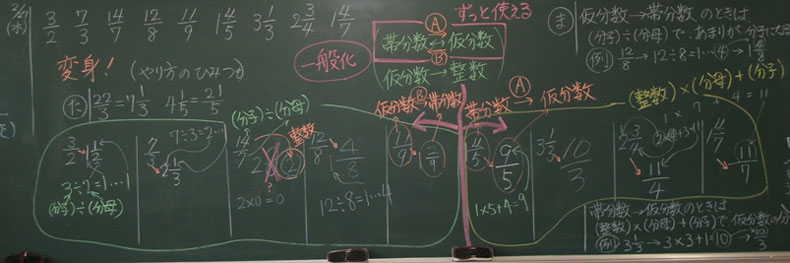 (水)
3/2 7/3 14/7 12/8 11/9 1 4/5 3 1/3 2 3/4 1 4/7
変身! (やり方のひみつ)
た 22/3 = 7 1/3 4 1/5 = 21/5
一般化
Ⓐ ずっと使える
帯分数 ↔ 仮分数
Ⓑ
仮分数 → 整数
ま 仮分数 → 帯分数 のときは
(分子)÷(分母)で、あまりが分子になる
例 12/8 → 12÷8=1…(4) → 1 4/8
(分子)÷(分母)
仮分数 Ⓑ→ 帯分数
帯分数 Ⓐ→ 仮分数
(整数)×(分母)+(分子)
3/2 1 1/2
3÷2=1…1
(分子)÷(分母)
7/3 2 1/3
7÷3=2…
14/7 2 整数 2
?
2×0=0
12/8 4/8
12÷8=1…4
11/9
1 4/5 9/5
1×5+4=9
3 1/3 10/3
2 3/4 11/4
1 4/7 11/7
1 × 7 + 4 = 11
帯分数 → 仮分数 のときは
(整数)×(分母)+(分子)で 仮分数の分
例 3 1/3 → 3×3+1=10 → 10/3